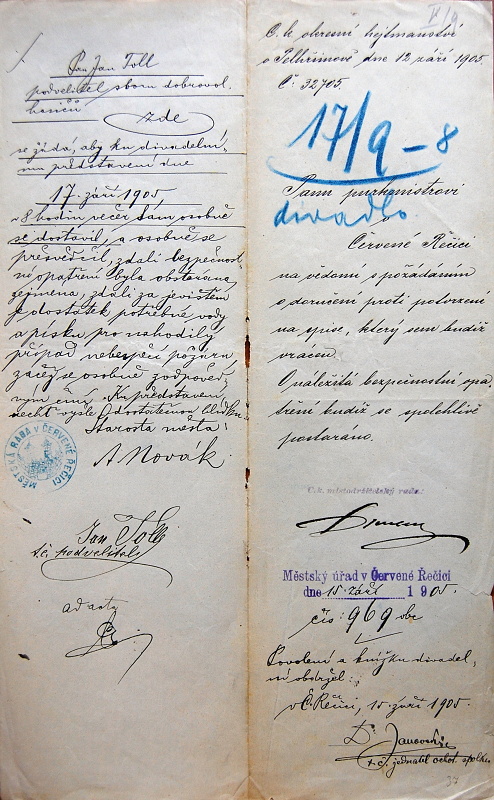 Pan Jan Toll
podvelitel sboru dobrovol.
hasičů
zde
se žádá, aby ku divadelní-
mu představení dne
17. září 1905
v 8 hodin večer sám osobně
se dostavil, a osobně se
přesvědčil, zdali bezpečnost-
ní opatření byla obstarána,
zejména, zdali za jevištěm
je dostatek potřebné vody
a písku pro nahodilý
případ nebezpečí požáru
začež se osobně zodpověd-
ným činí. Ku představení
nechť vyšle dostatečnou hlídku.
Starosta města:
A Novák.
MĚSTSKÁ RADA V ČERVENÉ ŘEČICI
Jan Toll
t.č. podvelitel
ad acta
C. k. okresní hejtmanství
v Pelhřimově dne 12 září 1905.
Č. 32705.
17/9 - 8
divadlo
Panu purkmistrovi
v
Červené Řečici
na vědomí s požádáním
o doručení proti potvrzení
na spise, který sem budiž
vrácen.
O náležitá bezpečnostní opa-
tření budiž se spolehlivě
postaráno.
C.k. místodržitelský rada:
Městský úřad v Červené Řečici
dne 15. září 1905.
čís: 969 obc
Povolení a knížku divadel-
ní obdržel:
v Č. Řečici, 15. září 1905.
t. č. jednatel ochot. spolku.
37